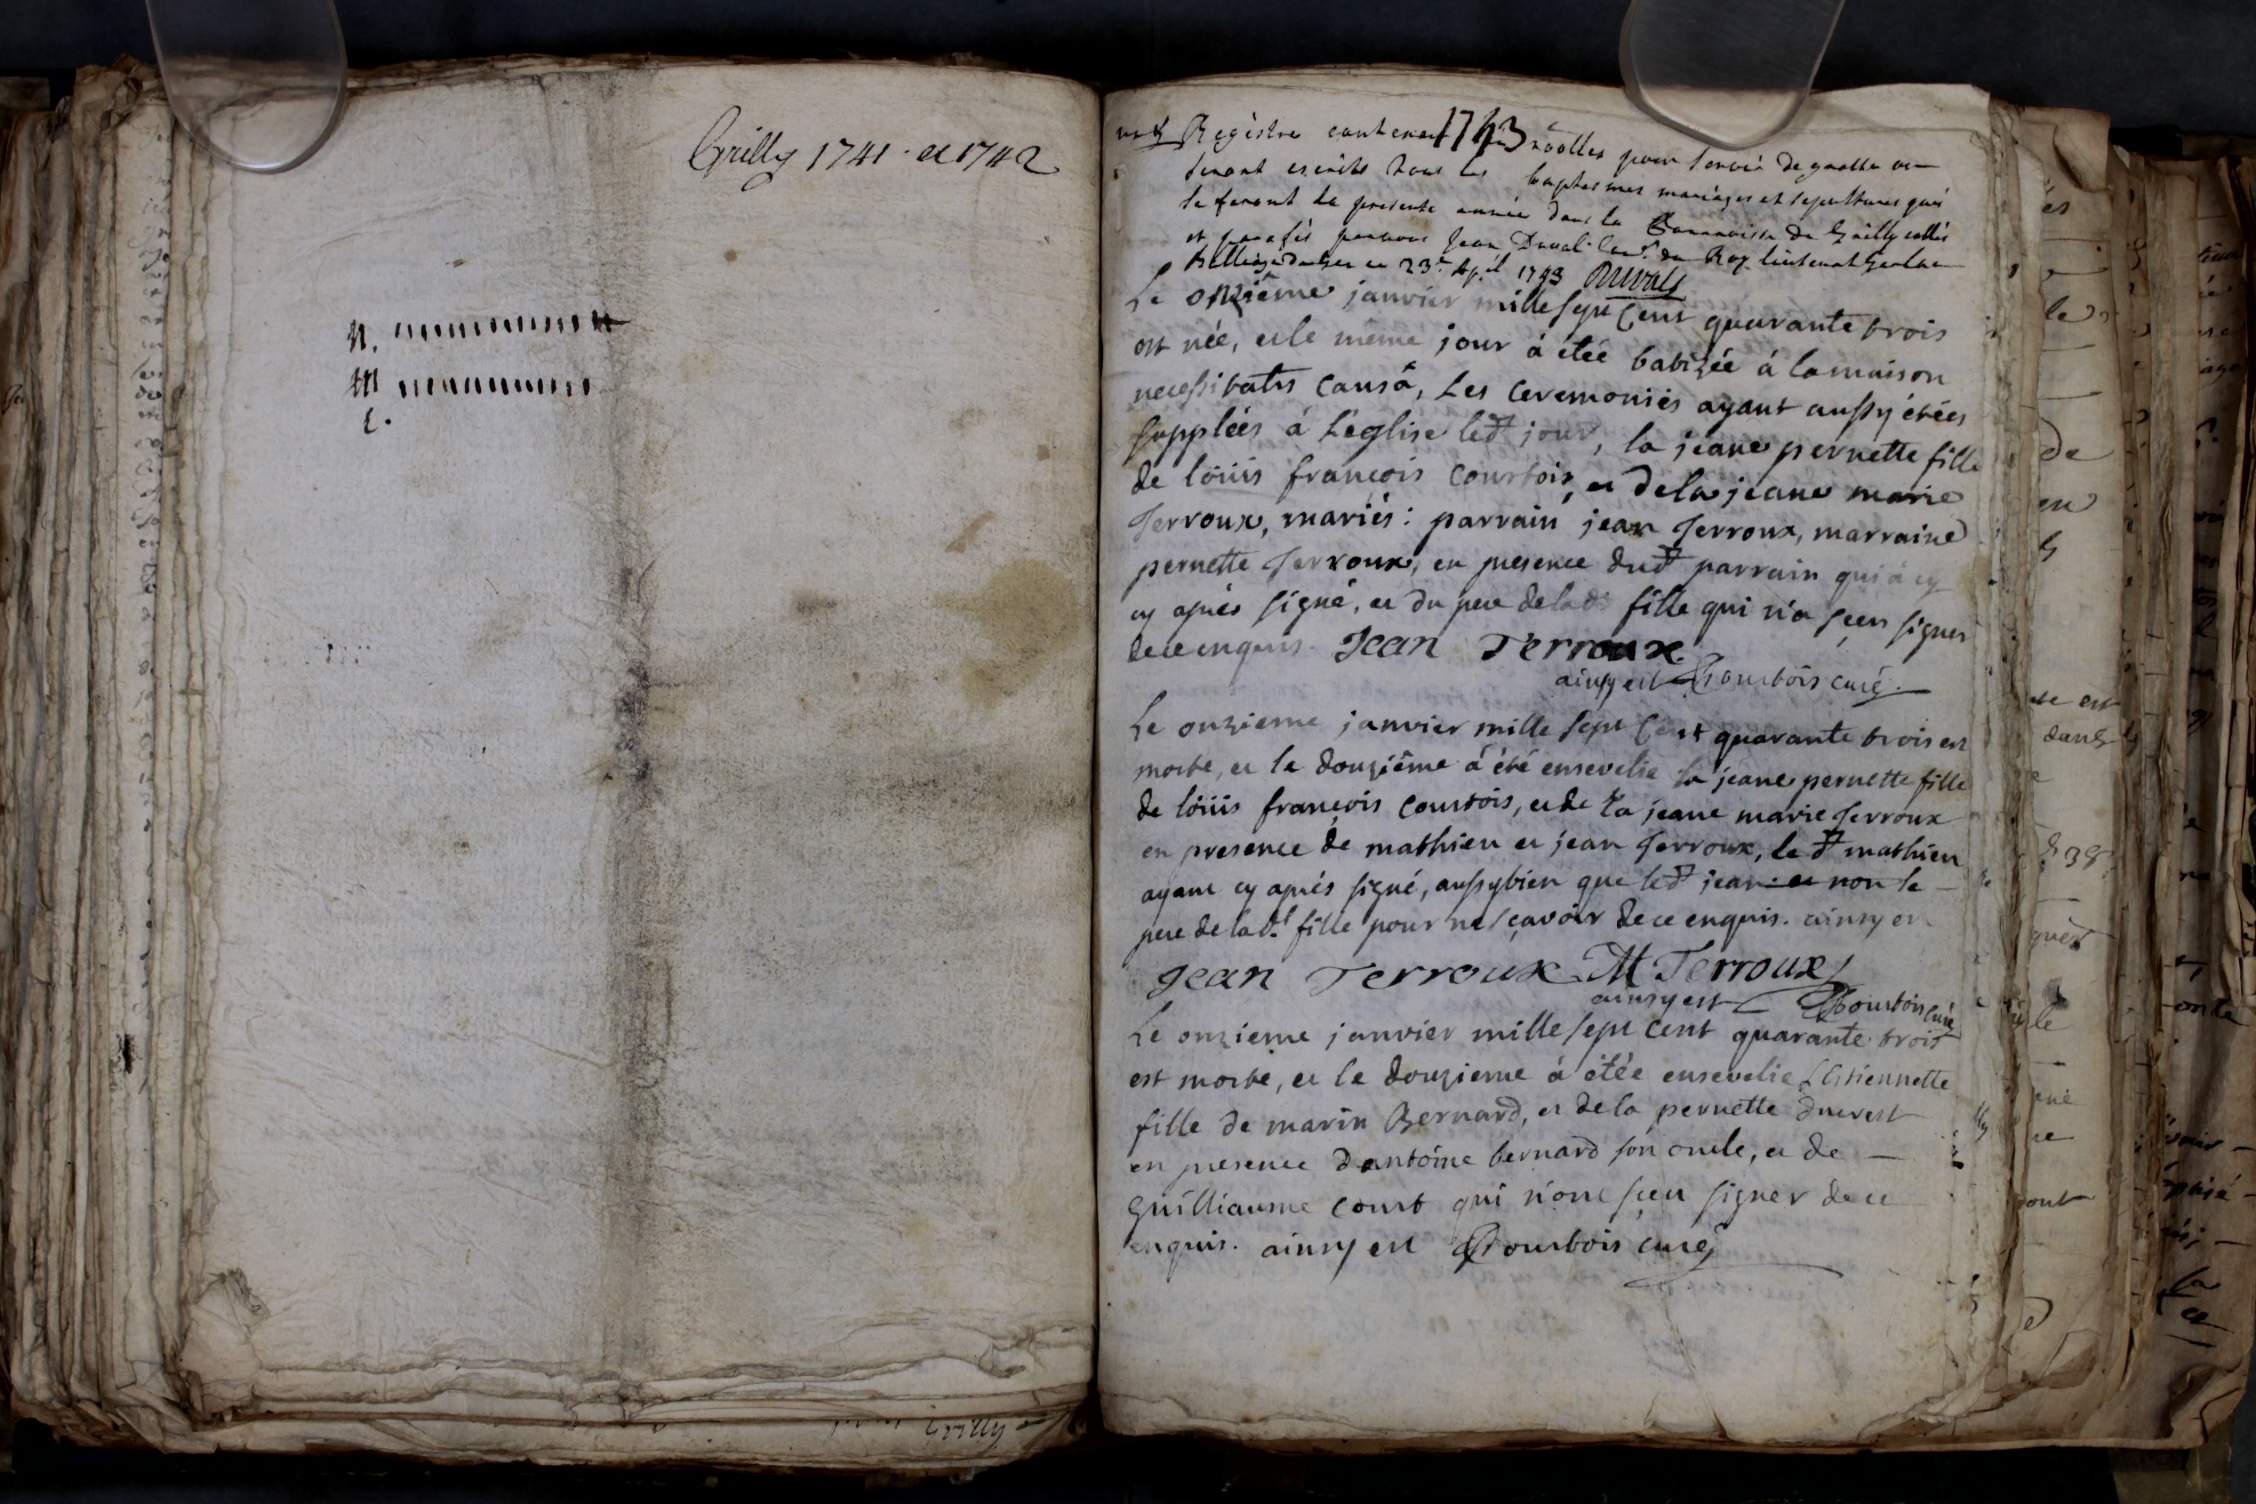 Grilly 1741. et 1742
n.
m
1743
Registre contenant roolles pour servir de grosse ou
seront escrits tous les baptesmes mariages et sepultures qui
se feront la presente année dans la Parroisse de Grilly cottés
et parafés par nous Jean Duval du Roy lieutenant
ce 23e 1743 Duval
Le onzième janvier mille sept cent quarante trois
est née, et le même jour á étée batizée á la maison
necessitatis causâ, les ceremoniés ayant aussy étées
supplées á l'église led jour, la jeane pernette fille
de loüis françois courtois, et de la jeane marie
Terroux, mariés: parrain jean Terroux, marraine
pernette Terroux, en presence dud parrain qui á cy
cy aprés signé, et du pere de lad. fille qui n'a sçeu signer
de ce enquis. Jean Terroux
ainsy est Courtois curé.
Le onzieme janvier mille sept Cent quarante trois est
morte, et le douzième á été ensevelie la jeane pernette fille
de loüis françois courtois, et de la jeane marie Terroux
en presence de mathieu et jean Terroux, le d mathieu
ayant cy aprés signé, aussy bien que led jean et non le
pere de lad. fille pour ne sçavoir de ce enquis. ainsy est
Jean Terroux M Terroux
ainsy est Courtois Curé
Le onzieme janvier mille sept cent quarante trois
est morte, et le douzieme á étée ensevelie l'Estiennette
fille de marin Bernard, et de la pernette duerest
en presence d'antoine bernard son oncle, et de
guilliaume court qui n'ont sçeu signer de ce
enquis. ainsy est Courtois curé